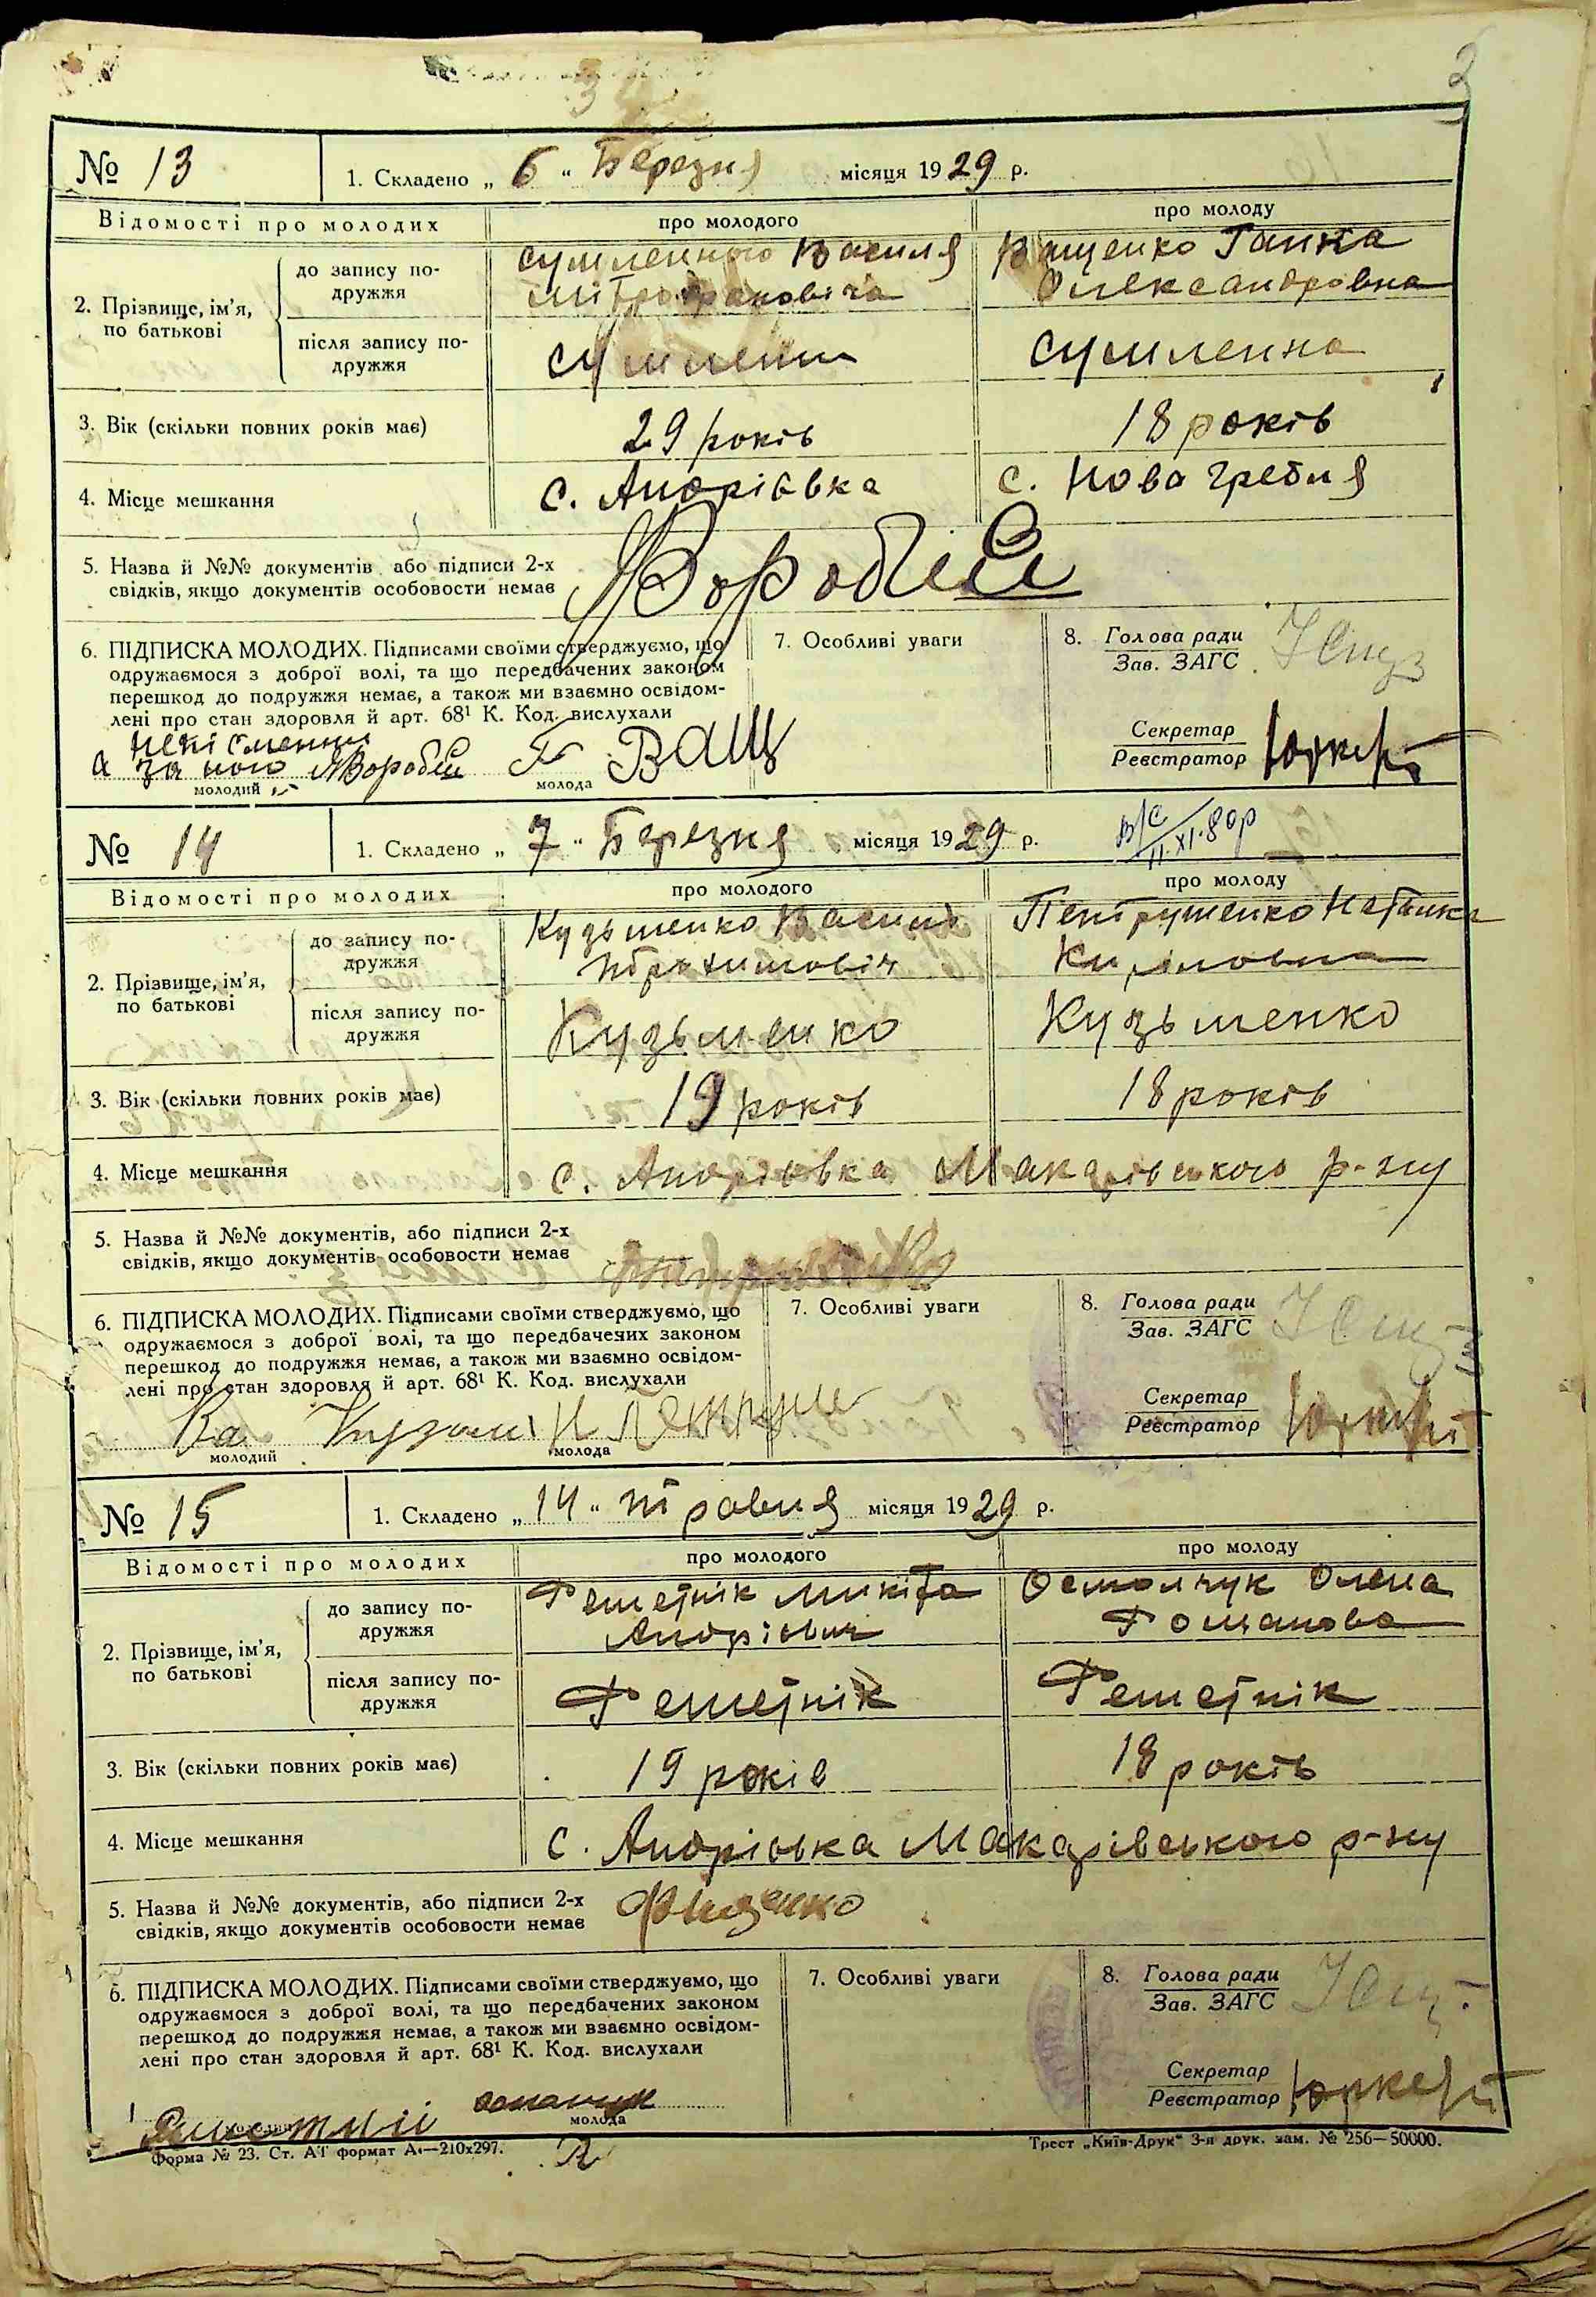 3
№ 13
1. Складено „ 6 “ Березня місяця 1929 р.
Відомості про молодих
про молодого
про молоду
2. Прізвище, ім’я, по батькові
до запису подружжя
Сумленного Василя
Ващенко Ганна
Олександровна
після запису подружжя
Сумленна
3. Вік (скільки повних років має)
29 років
18 років
4. Місце мешкання
с. Андріівка
с. Нова Гребля
5. Назва й №№ документів або підписи 2-х
свідків, якщо документів особовости немає
Воробей
6. ПІДПИСКА МОЛОДИХ. Підписами своїми стверджуємо, що
одружаємося з доброї волі, та що передбачених законом
перешкод до подружжя немає, а також ми взаємно освідом-
лені про стан здоровля й арт. 68¹ К. Код. вислухали
7. Особливі уваги
8. Голова ради
Зав. ЗАГС
Секретар
Реєстратор
а за ного Воробей
Г Ващ
молодий
молода
№ 14
1. Складено „ 7 “ Березня місяця 1929 р.
В/С
11.XI.80р
Відомості про молодих
про молодого
про молоду
2. Прізвище, ім’я,
по батькові
до запису по-
дружжя
Кузьменко Василь
Петрушенко Наталка
після запису по-
дружжя
Кузьменко
Кузьменко
3. Вік (скільки повних років має)
19 років
18 років
4. Місце мешкання
с. Андріівка Макарівського р-ну
5. Назва й №№ документів, або підписи 2-х
свідків, якщо документів особовости немає
6. ПІДПИСКА МОЛОДИХ. Підписами своїми стверджуємо, що
одружаємося з доброї волі, та що передбачених законом
перешкод до подружжя немає, а також ми взаємно освідом-
лені про стан здоровля й арт. 68¹ К. Код. вислухали
7. Особливі уваги
8. Голова ради
Зав. ЗАГС
Секретар
Реєстратор
молодий
молода
№ 15
1. Складено „ 14 “ травня місяця 1929 р.
Відомості про молодих
про молодого
про молоду
2. Прізвище, ім’я,
по батькові
до запису по-
дружжя
Решетнік Микіта
Андріович
Остапчук Олена
Романова
після запису по-
дружжя
Решетнік
Решетнік
3. Вік (скільки повних років має)
19 років
18 років
4. Місце мешкання
с. Андріівка Макарівського р-ну
5. Назва й №№ документів, або підписи 2-х
свідків, якщо документів особовости немає
6. ПІДПИСКА МОЛОДИХ. Підписами своїми стверджуємо, що
одружаємося з доброї волі, та що передбачених законом
перешкод до подружжя немає, а також ми взаємно освідом-
лені про стан здоровля й арт. 68¹ К. Код. вислухали
7. Особливі уваги
8. Голова ради
Зав. ЗАГС
Секретар
Реєстратор
молода
Форма № 23. Ст. АТ формат А₄—210х297.
Трест „Київ-Друк“ 3-я друк. зам. № 256—50000.